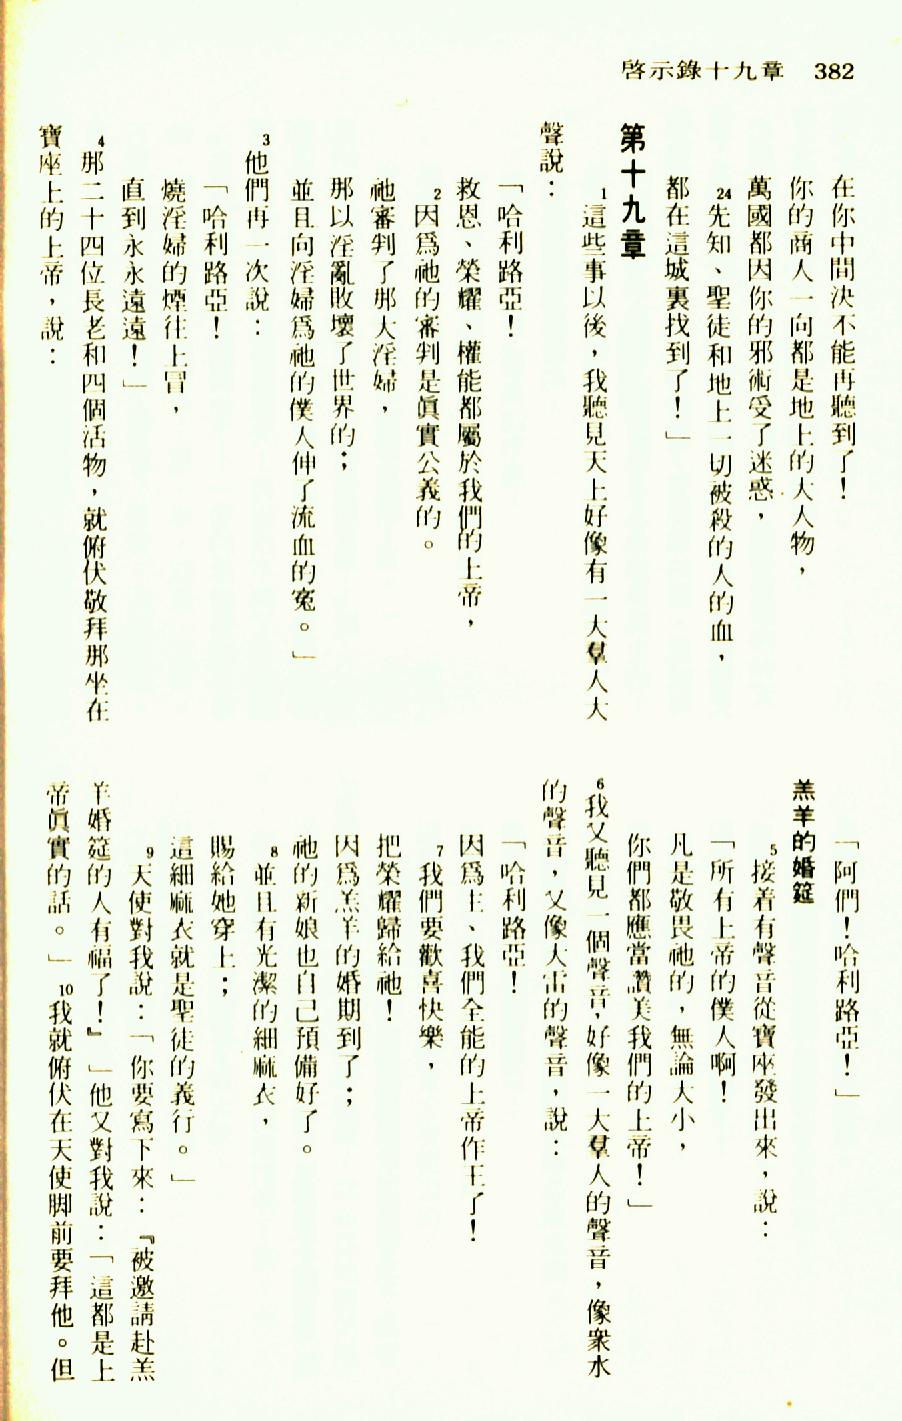 啓示錄十九章　382
在你中間決不能再聽到了！
你的商人一向都是地上的大人物，
萬國都因你的邪術受了迷惑，
24先知、聖徒和地上一切被殺的人的血，
都在這城裏找到了！」
第十九章
1這些事以後，我聽見天上好像有一大羣人大
聲說：
「哈利路亞！
救恩、榮耀、權能都屬於我們的上帝，
2因爲祂的審判是眞實公義的。
祂審判了那大淫婦，
那以淫亂敗壞了世界的；
並且向淫婦爲祂的僕人伸了流血的冤。」
3他們再一次說：
「哈利路亞！
燒淫婦的煙往上冒，
直到永永遠遠！」
4那二十四位長老和四個活物，就俯伏敬拜那坐在
寶座上的上帝，說：
「阿們！哈利路亞！」
羔羊的婚筵
5接着有聲音從寶座發出來，說：
「所有上帝的僕人啊！
凡是敬畏祂的，無論大小，
你們都應當讚美我們的上帝！」
6我又聽見一個聲音，好像一大羣人的聲音，像衆水
的聲音，又像大雷的聲音，說：
「哈利路亞！
因爲主、我們全能的上帝作王了！
7我們要歡喜快樂，
把榮耀歸給祂！
因爲羔羊的婚期到了；
祂的新娘也自己預備好了。
8並且有光潔的細麻衣，
賜給她穿上；
這細麻衣就是聖徒的義行。」
9天使對我說：「你要寫下來：『被邀請赴羔
羊婚筵的人有福了！』」他又對我說：「這都是上
帝眞實的話。」10我就俯伏在天使脚前要拜他。但